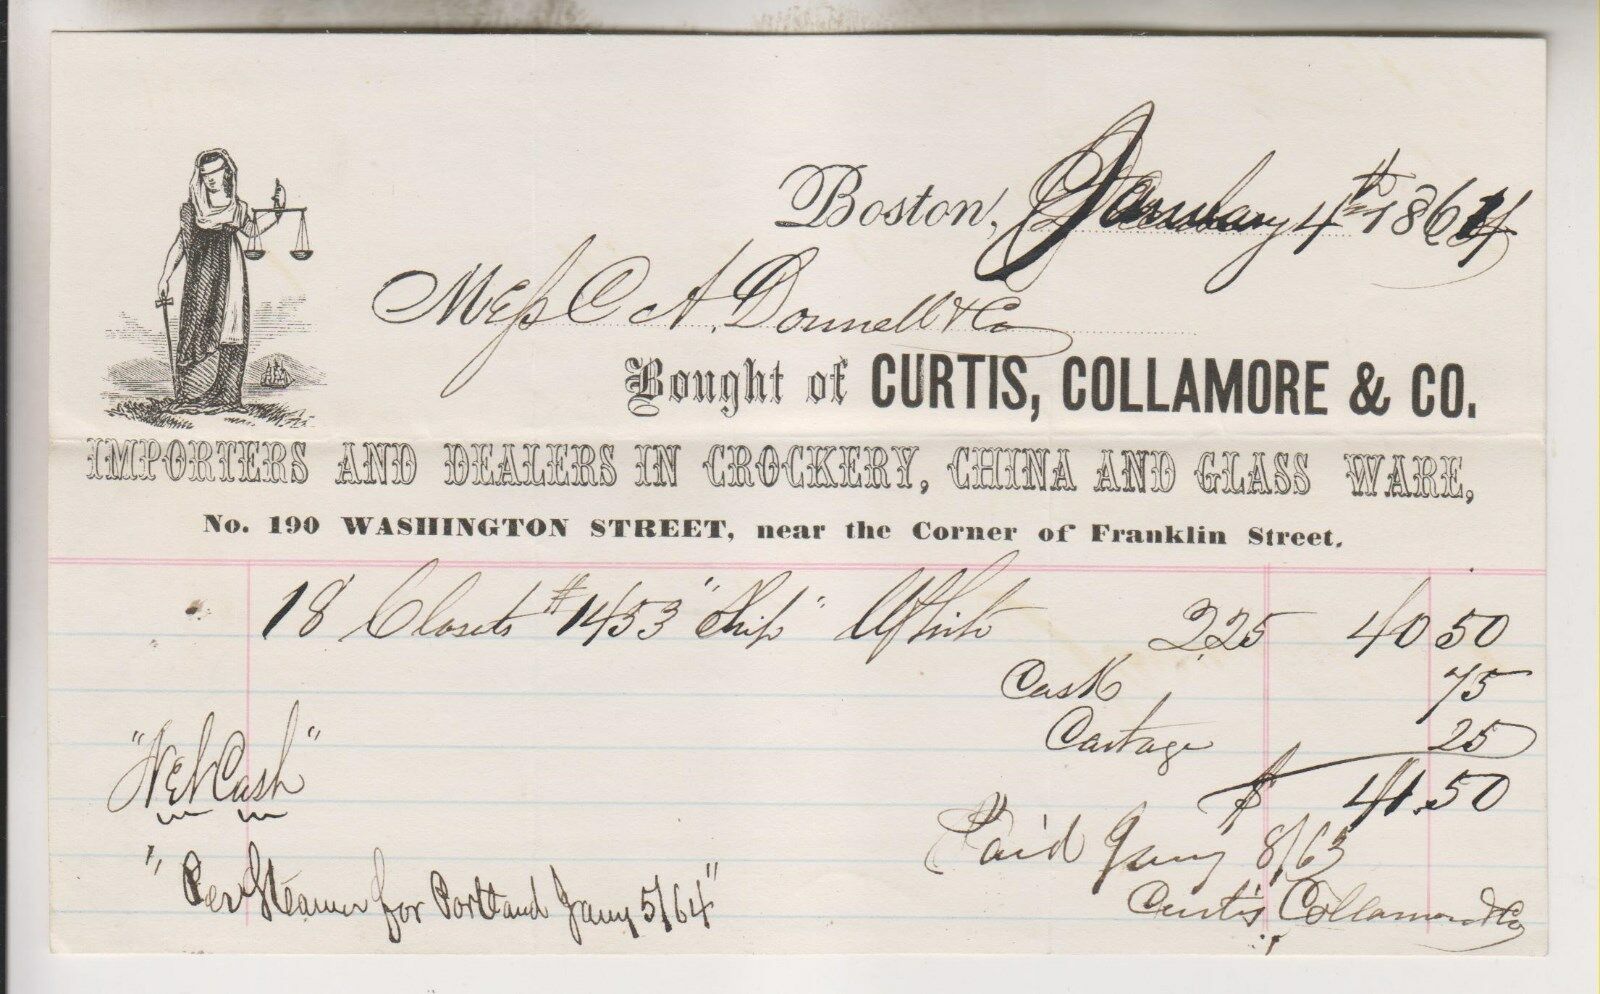 Boston, January 4th 1864
Mess C. A. Donnell & Co
Bought of CURTIS, COLLAMORE & CO.
IMPORTERS AND DEALERS IN CROCKERY, CHINA AND GLASS WARE,
No. 190 WASHINGTON STREET, near the Corner of Franklin Street.
18 Closets #1453 "Ship" White 2.25 40 50
Cask 75
Cartage 25
$ 41.50
"Net Cash"
Paid Jany 8/63
"Per Steamer for Portland Jany 5/64"
Curtis Collamore & Co